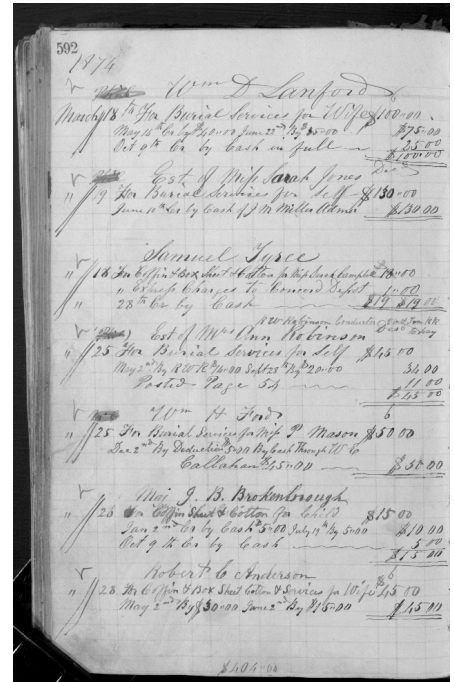 592
1874
Wm D Lanford
March 18th For Burial Services for Wife $100-00
May 16th Cr by $40-00 June 22nd By $35-00 $75-00
Oct 9th Cr by Cash in full 25 00
$100-00
Est of Miss Sarah Jones Dec
" 19 For Burial Services for Self $130-00
June 10th Cr by Cash of J M Miller Admr $130 00
Samuel Tyree
" 18 For Coffin & Box Sheet & Cotton for Miss Campbell 18-00
" Express Charges to Concord Depot 1-00
28th Cr by Cash $19 $19 00
R W Robinson Conductor
Est of Mrs Ann Robinson
" 25 For Burial Services for Self $45-00
May 2nd By R W R $14-00 Sept 28th By $20-00 34 00
Posted Page 54 11 00
$45-00
Wm H Ford
" 25 For Burial Services for Miss P Mason $50 00
Dec 2nd By Deduction $5-00 By Cash Through W C
Callahan $45-00 $50-00
Maj J. B. Brokenbrough
" 26 For Coffin Sheet & Cotton for Child $15 00
Jan 2nd Cr by Cash $5-00 July 19th By 5-00 $10.00
Oct 9th Cr by Cash 5 00
$15 00
Robert C Anderson
" 28 For Coffin & Box Sheet Cotton & Services for Wife $45 00
May 2nd By $30-00 June 2nd By $15-00 $45 00
$404-00